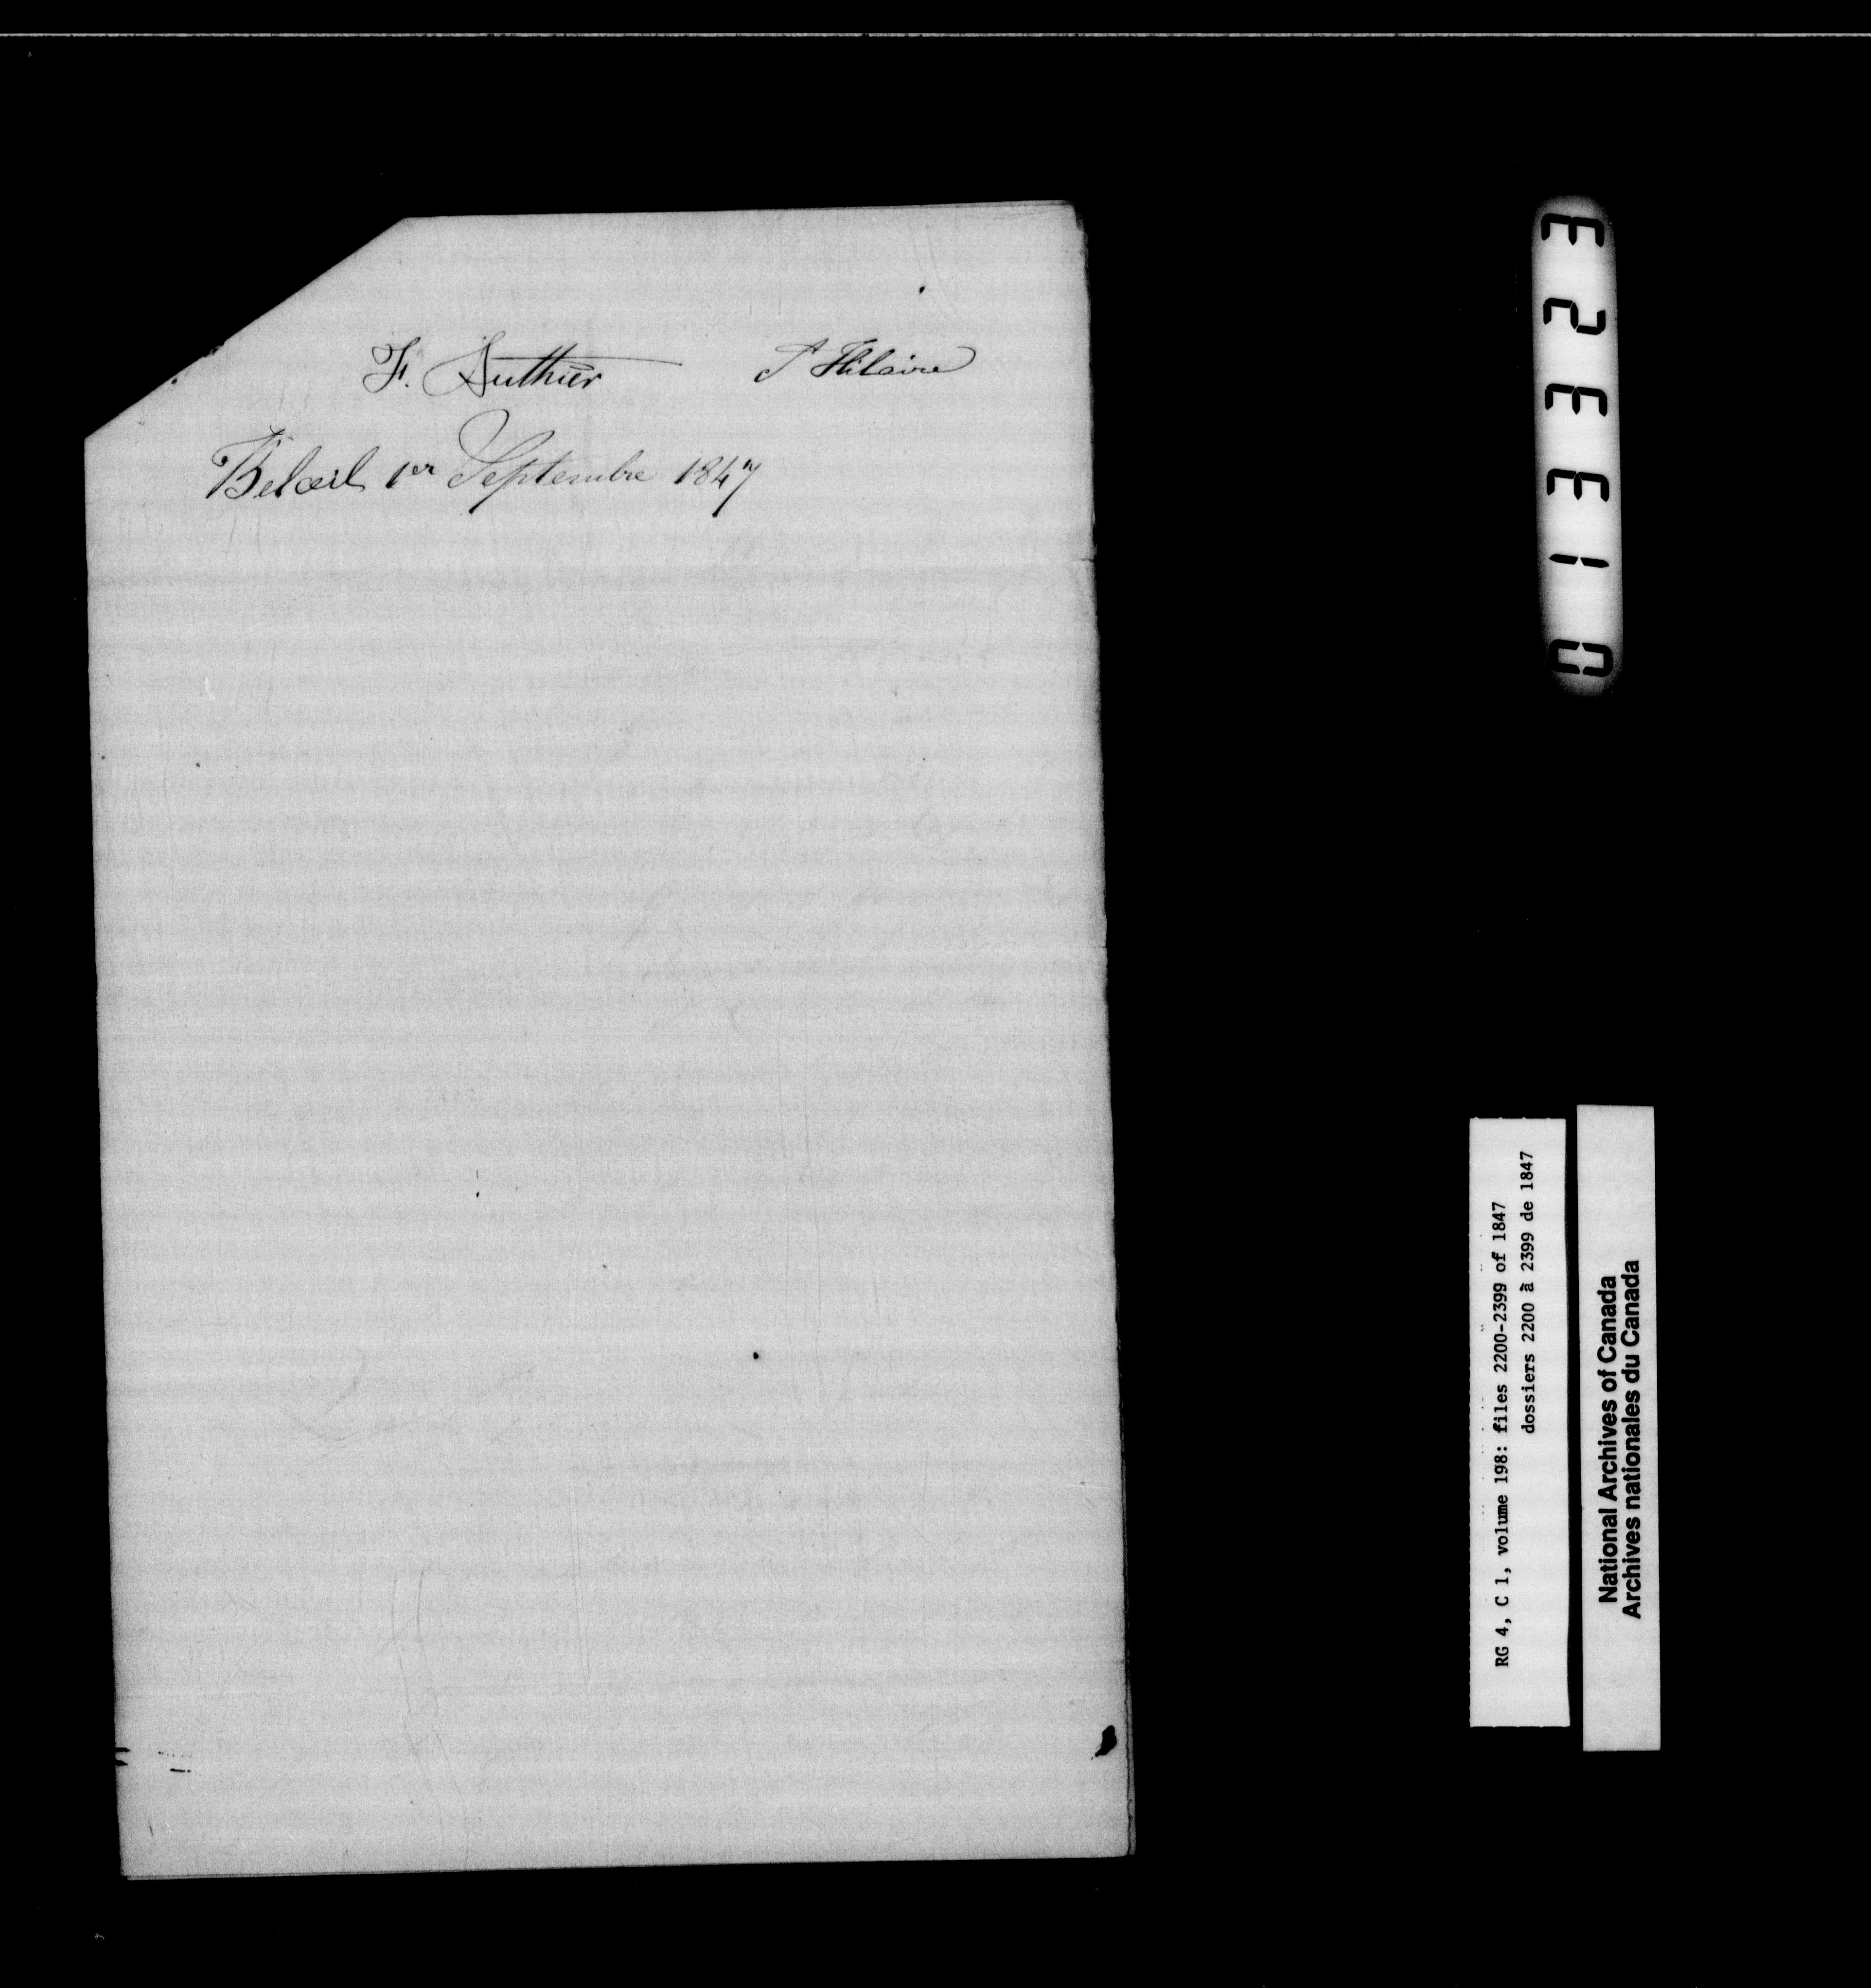 F. Authier St Hilaire
Belœil 1er Septembre 1847
013323
RG 4, C 1, volume 198: files 2200-2399 of 1847
dossiers 2200 à 2399 de 1847
National Archives of Canada
Archives nationales du Canada